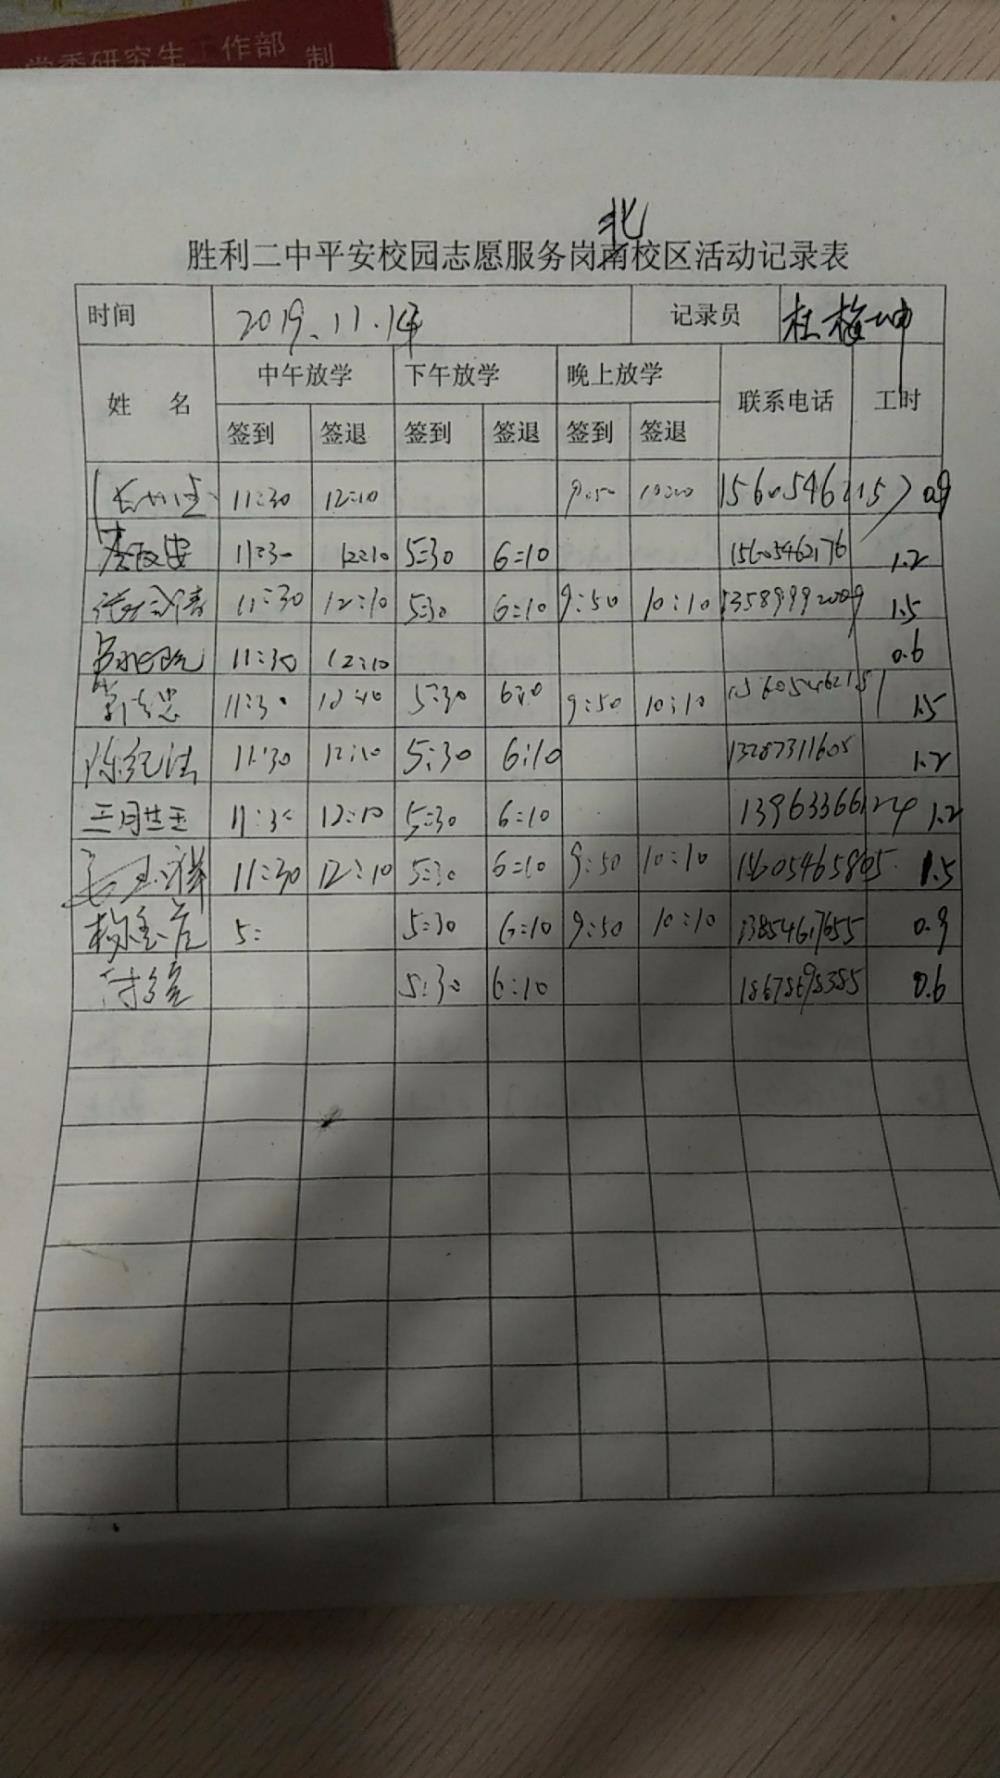 党委研究生工作部 制
北
胜利二中平安校园志愿服务岗南校区活动记录表
时间 2019.11.14 记录员 杜梅坤
姓 名 中午放学 下午放学 晚上放学 联系电话 工时
签到 签退 签到 签退 签到 签退
11:30 12:10 9:50 10:00 0.9
11:30 12:10 5:30 6:10 15605462176 1.2
11:30 12:10 5:30 6:10 9:50 10:10 13589992009 1.5
11:30 12:10 0.6
11:30 12:10 5:30 6:10 9:50 10:10 1.5
陈纪法 11:30 12:10 5:30 6:10 13287311605 1.2
11:30 12:10 5:30 6:10 13963366124 1.2
11:30 12:10 5:30 6:10 9:50 10:10 15605465805 1.5
5: 5:30 6:10 9:50 10:10 13854617655 0.9
5:30 6:10 18678698385 0.6